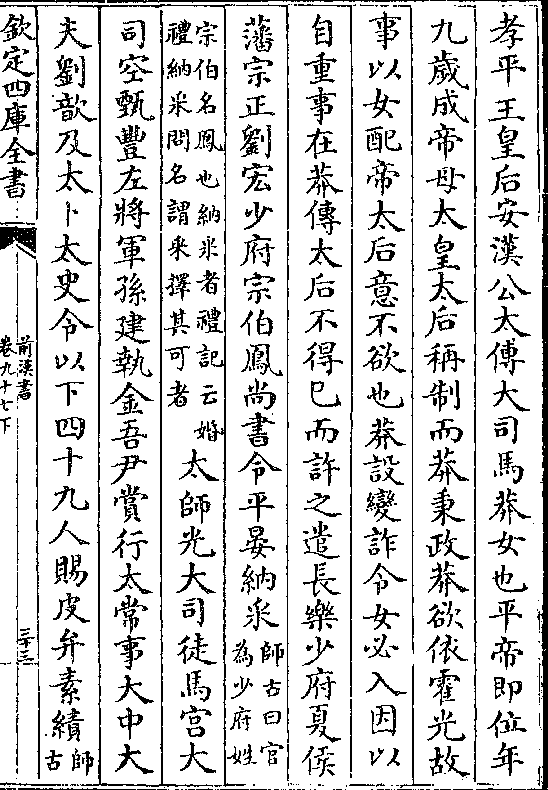 孝平王皇后安漢公太傅大司馬莽女也平帝即位年
九歲成帝母太皇太后稱制而莽秉政莽欲依霍光故
事以女配帝太后意不欲也莽設變詐令女必入因以
自重事在莽傳太后不得已而許之遣長樂少府夏侯
藩宗正劉宏少府宗伯鳳尚書令平晏納采師古曰官為少府姓
宗伯名鳳也納采者禮記云婚禮納采問名謂采擇其可者太師光大司徒馬宮大
司空甄豐左將軍孫建執金吾尹賞行太常事大中大
夫劉歆及太卜太史令以下四十九人賜皮弁素績師古
欽定四庫全書
前漢書
卷九十七下
三十三